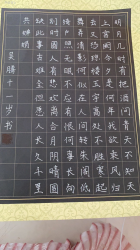 明月几时有把酒问青天不知
天上宫阙今夕是何年我欲乘风归
去又恐琼楼玉宇高处不胜寒起
舞弄清影何似在人间转朱阁低
绮户照无眠不应有恨何事长向
别时圆人有悲欢离合月有阴晴圆
缺此事古难全但愿人长久千里
共婵娟
吴 十一岁书